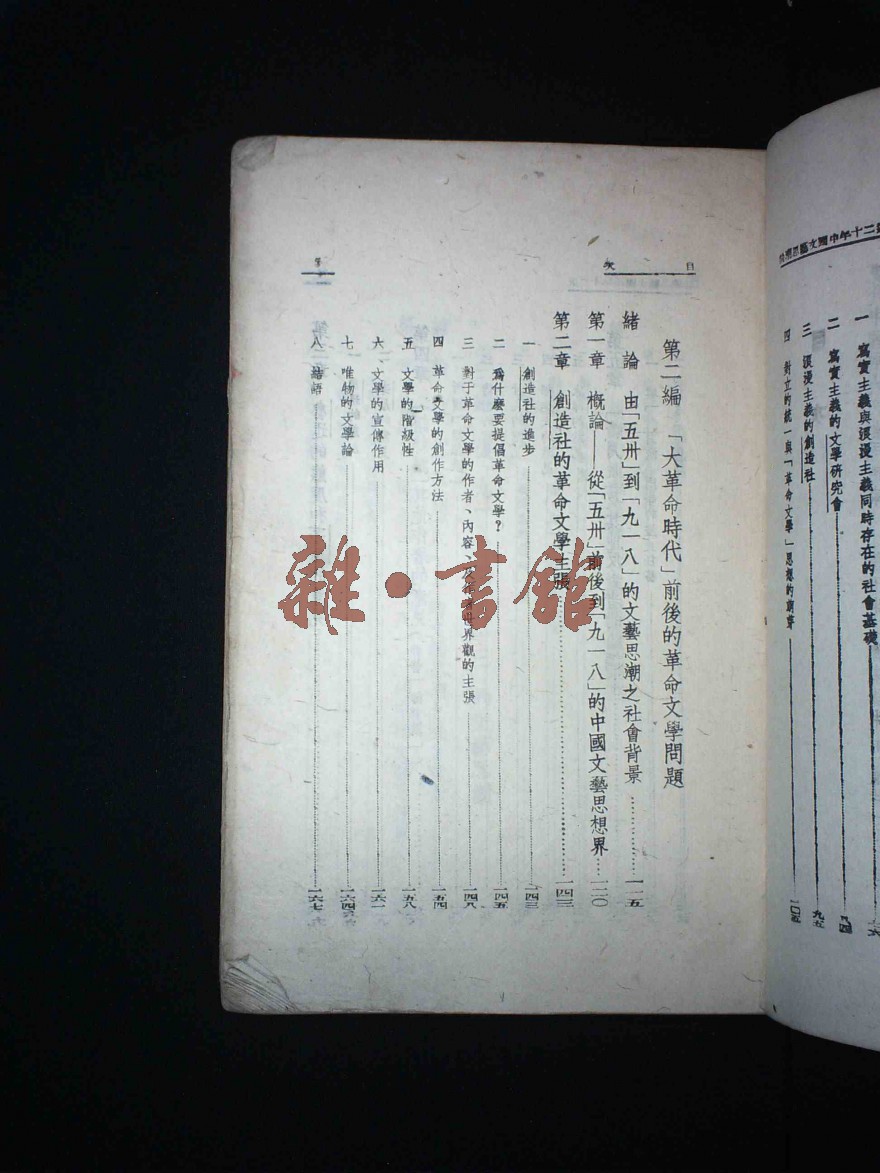 二十年中國文藝思潮論
一 寫實主義與浪漫主義同時存在的社會基礎
二 寫實主義的文學研究會
三 浪漫主義的創造社 九五
四 對立的統一與「革命文學」思想的萌芽 一〇五
目次
第二編 「大革命時代」前後的革命文學問題
緒論 由「五卅」到「九一八」的文藝思潮之社會背景 一一五
第一章 概論——從「五卅」前後到「九一八」的中國文藝思想界 一二〇
第二章 創造社的革命文學主張 一四三
一 創造社的進步 一四三
二 為什麼要提倡革命文學？ 一四五
三 對于革命文學的作者、內容、及作者世界觀的主張 一四八
四 革命文學的創作方法 一五四
五 文學的階級性 一五八
六、文學的宣傳作用 一六一
七 唯物的文學論 一六四
八 結語 一六七
雜·書館